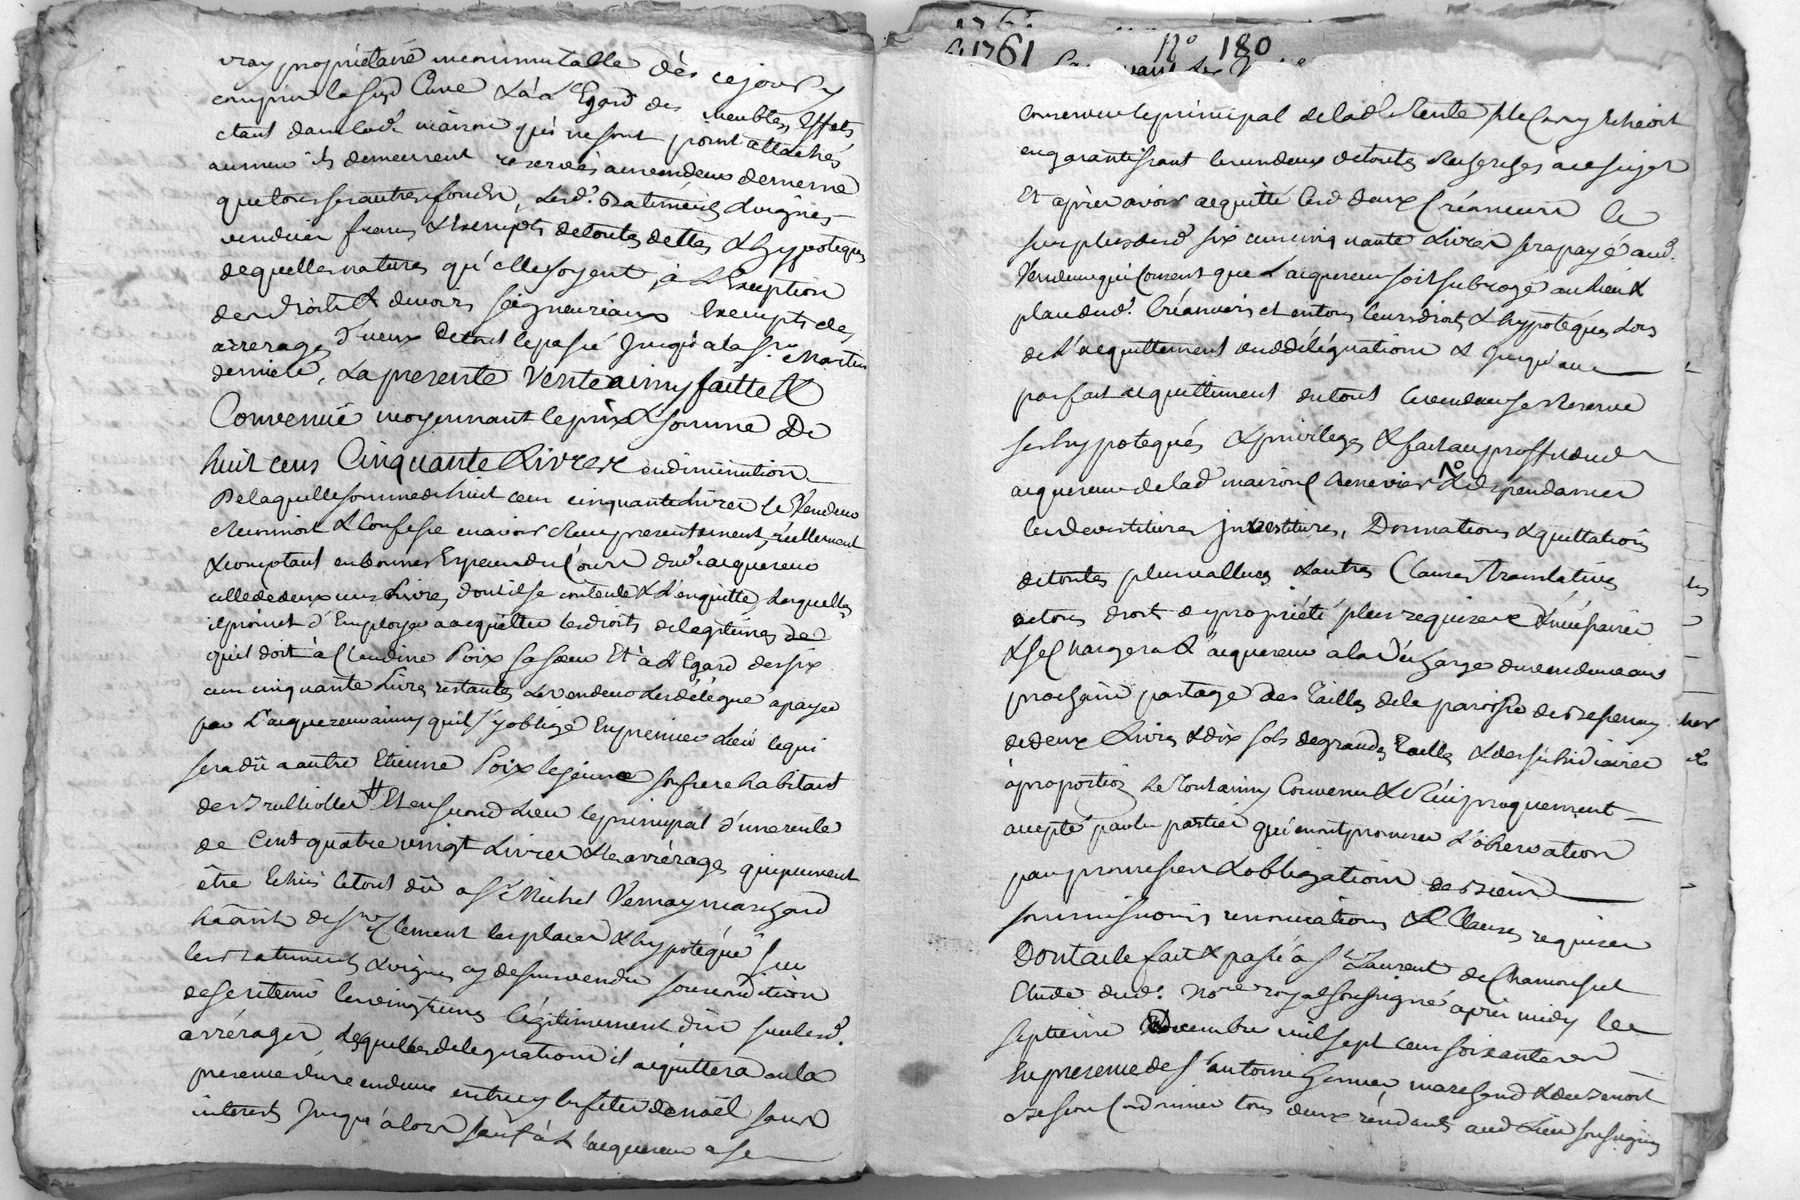 vray propriétaire incommutable dès ce jour y
compris la susd Cuve & à l'Egard des meubles, Effets
étant dans lad.e maison qui ne sont point attachés
au mur ils demeurent reservés au vendeur de meme
que tous ses autres fonds, Lesd.s Batiments & vignes
vendües francs & exempts de toutes dettes & hypoteques
de quelles natures qu'elles soyent, à L'Exception
des droits & devoirs seigneuriaux Exempts des
arrerages d'iceux de tout le passé Jusqu'à la St. Martin
derniere, La presente Vente ainsy faitte &
Convenüe moyennant le prix & somme De
huit cens Cinquante Livres en diminution
De laquelle somme de huit cens cinquante Livres le Vendeur
reconnoit & confesse en avoir reçu presentement, réellement
& comptant en bonnes Especes du Cours dud.t acquereur
celle de deux cens Livres, dont il se contente & L'en quitte, Lesquelles
il promet d'Employer a acquitter les droits de legitimes de
qu'il doit à Claudine Poix sa soeur Et à L'Egard des six
cens cinquante Livres restantes Le vendeur Les délégue à payer
par L'acquereur ainsy qu'il s'y oblige En premier Lieu ce qui
sera dû a autre Etienne Poix le jeune son frere habitant
de Brullioles # Et en second Lieu le principal d'une rente
de Cent quatre vingt Livres & les arrérages qui peuvent
être Echus le tout dû a Sr Michel Vernay marchand
hâânt de Ste Clement les places & hypotéqué sur
les Batiments & vignes cy dessus vendus sous condition
de se retenir les vingtiemes légitimement dûs sur lesd.
arrérages Lesquelles delegations il acquittera en la
presence du vendeur entre cy les fetes de noël sans
interets Jusqu'alors sauf à L'acquereur a se
1761 N° 180
conserver le principal de lad.e Rente s'il le Cas y Echeoit
en garantissant le vendeur de toutes recherches à ce sujet
Et après avoir acquitté lesd. deux Créanciers le
surplus desd. six cens cinquante Livres sera payé aud.
Vendeur qui consent que L'acquereur soit subrogé au Lieu &
place desd. Créanciers et en tous leurs droits & hypotéques Lors
de L'acquittement desd délégations & Jusqu'au
parfait acquittement du tout le vendeur se reserve
ses hypoteques & privileges & fait au proffit dud
acquereur de lad. maison Chenevier & dépendances
les devestitures investitures, Donnations & quittations
de toutes plus vallues & autres Clauses Translatives
de tous droit de propriété plus requises & necessaires
& se chargera L'acquereur a la décharge du vendeur au
prochain partage des Tailles de la paroisse de Bessenay
de deux Livres & dix sols de grandes Tailles & des subsidiaires
à proportion Le Tout ainsy Convenu & Réciproquement
accepté par les parties qui en ont promises L'observation
par promesses & obligations de Biens
soummissions, renonciations & Clauses requises
Dont acte fait & passé à St Laurent de Chamousset
Etude dud. No.re royal soussigné après midy le
septieme Decembre mil sept cens soixante un
En presence de Sr Antoine marchand & de Benoit
Cordonnier tous deux résidants aud Lieu soussignés